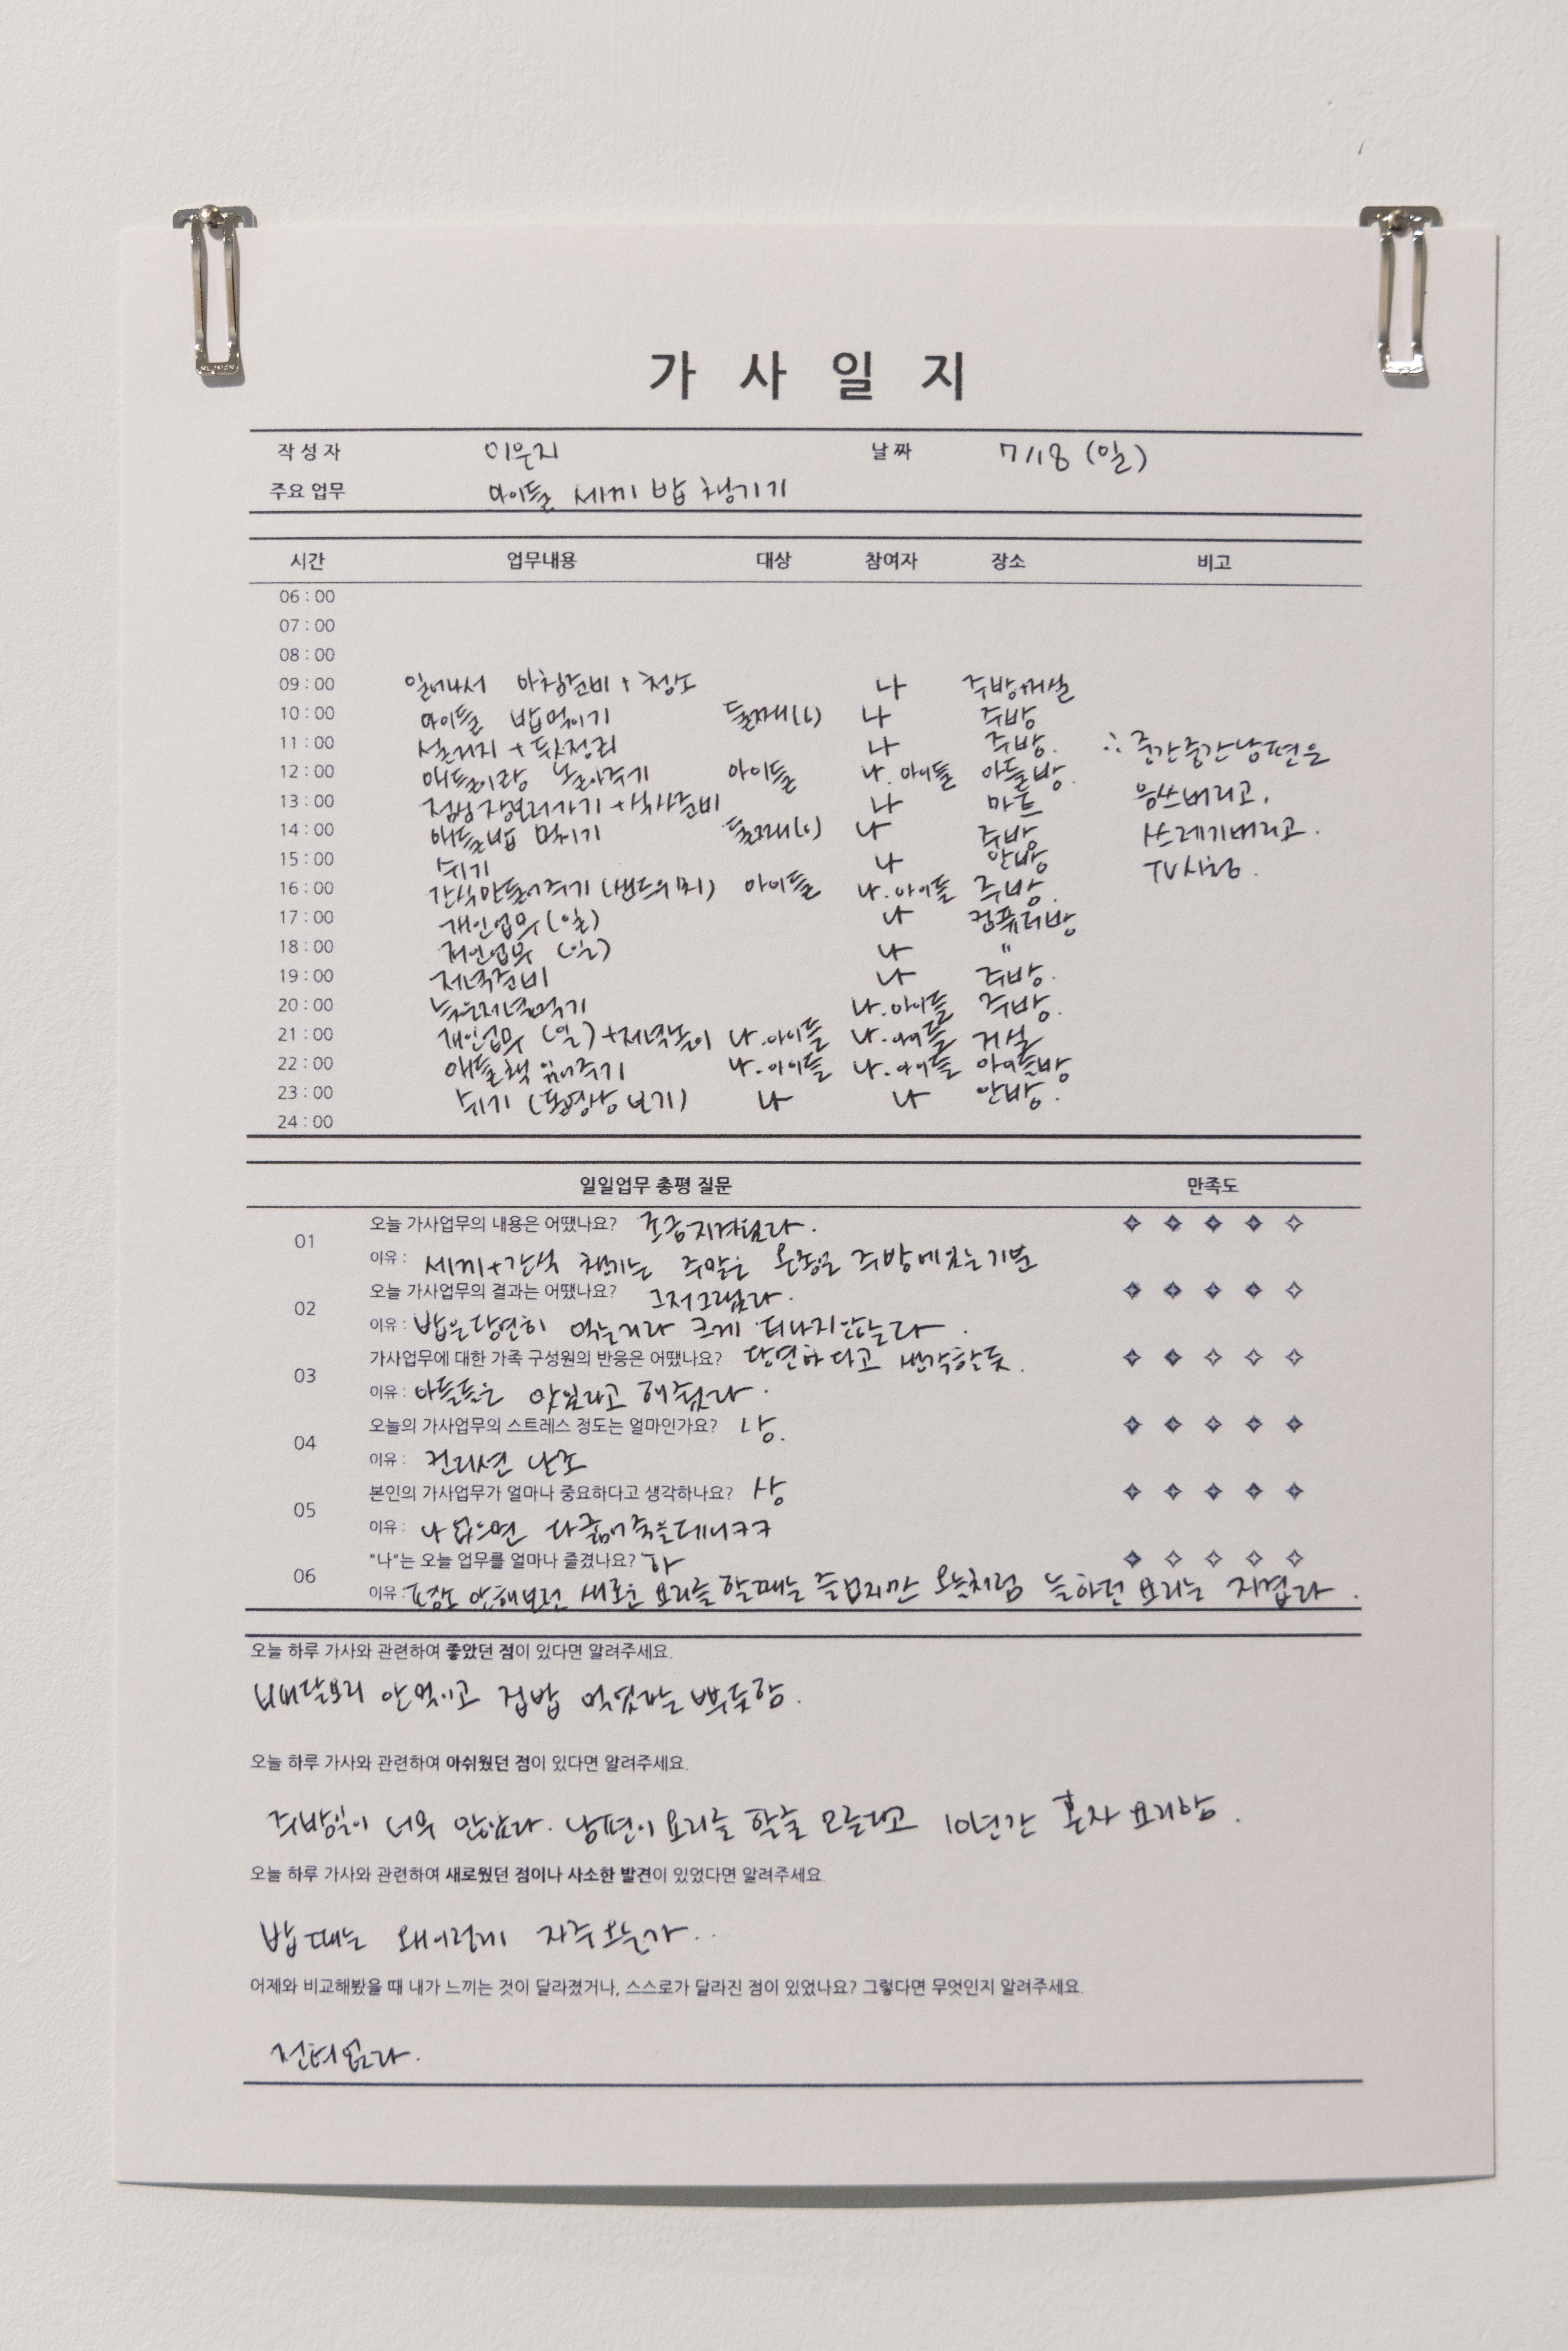 가사일지
작성자 이은지 날짜 7/18 (일)
주요 업무 아이들 세끼 밥 챙기기
시간 업무내용 대상 참여자 장소 비고
06:00
07:00
08:00
09:00 일어나서 아침준비 + 청소 나 주방+거실
10:00 아이들 밥먹이기 둘째(6) 나 주방
11:00 설거지 + 뒷정리 나 주방. ∴ 중간중간 남편은
12:00 애들이랑 놀아주기 아이들 나. 아이들 아들방.
13:00 점심 장보러가기 + 식사준비 나 마트 음쓰버리고,
14:00 애들밥 먹이기 둘째(6) 나 주방 쓰레기버리고.
15:00 쉬기 나 안방 TV시청.
16:00 간식만들어주기 (샌드위치) 아이들 나.아이들 주방.
17:00 개인업무(일) 나 컴퓨터방
18:00 개인업무 (일) 나 "
19:00 저녁준비 나 주방.
20:00 늦은저녁먹기 나.아이들 주방.
21:00 개인업무 (일)+저녁놀이 나.아이들 나.아이들 거실
22:00 애들책 읽어주기 나.아이들 나.아이들 아이들방
23:00 쉬기 (동영상 보기) 나 나 안방.
24:00
일일업무 총평 질문 만족도
01 오늘 가사업무의 내용은 어땠나요? 조금지겨웠다.
이유: 세끼+간식 챙기는 주말은 온종일 주방에있는기분
02 오늘 가사업무의 결과는 어땠나요? 그저그랬다.
이유: 밥은당연히 먹는거라 크게 티나지않는다.
03 가사업무에 대한 가족 구성원의 반응은 어땠나요? 당연하다고 생각한듯.
이유: 아들들은 맛있다고 해주었다.
04 오늘의 가사업무의 스트레스 정도는 얼마인가요? 상.
이유: 컨디션 난조
05 본인의 가사업무가 얼마나 중요하다고 생각하나요? 상
이유: 나 없으면 다 굶어죽을테니ㅋㅋ
06 "나"는 오늘 업무를 얼마나 즐겼나요? 하
이유: 안해보던 새로운 요리를 할때는 즐겁지만 오늘처럼 늘하던 요리는 지겹다.
오늘 하루 가사와 관련하여 좋았던 점이 있다면 알려주세요.
배달요리 안먹이고 집밥 먹였다는 뿌듯함.
오늘 하루 가사와 관련하여 아쉬웠던 점이 있다면 알려주세요.
주방일이 너무 많았다. 남편이 요리를 할줄 모른다고 10년간 혼자 요리함.
오늘 하루 가사와 관련하여 새로웠던 점이나 사소한 발견이 있었다면 알려주세요.
밥 때는 왜이렇게 자주오는가..
어제와 비교해봤을 때 내가 느끼는 것이 달라졌거나, 스스로가 달라진 점이 있었나요? 그렇다면 무엇인지 알려주세요.
전혀없다.